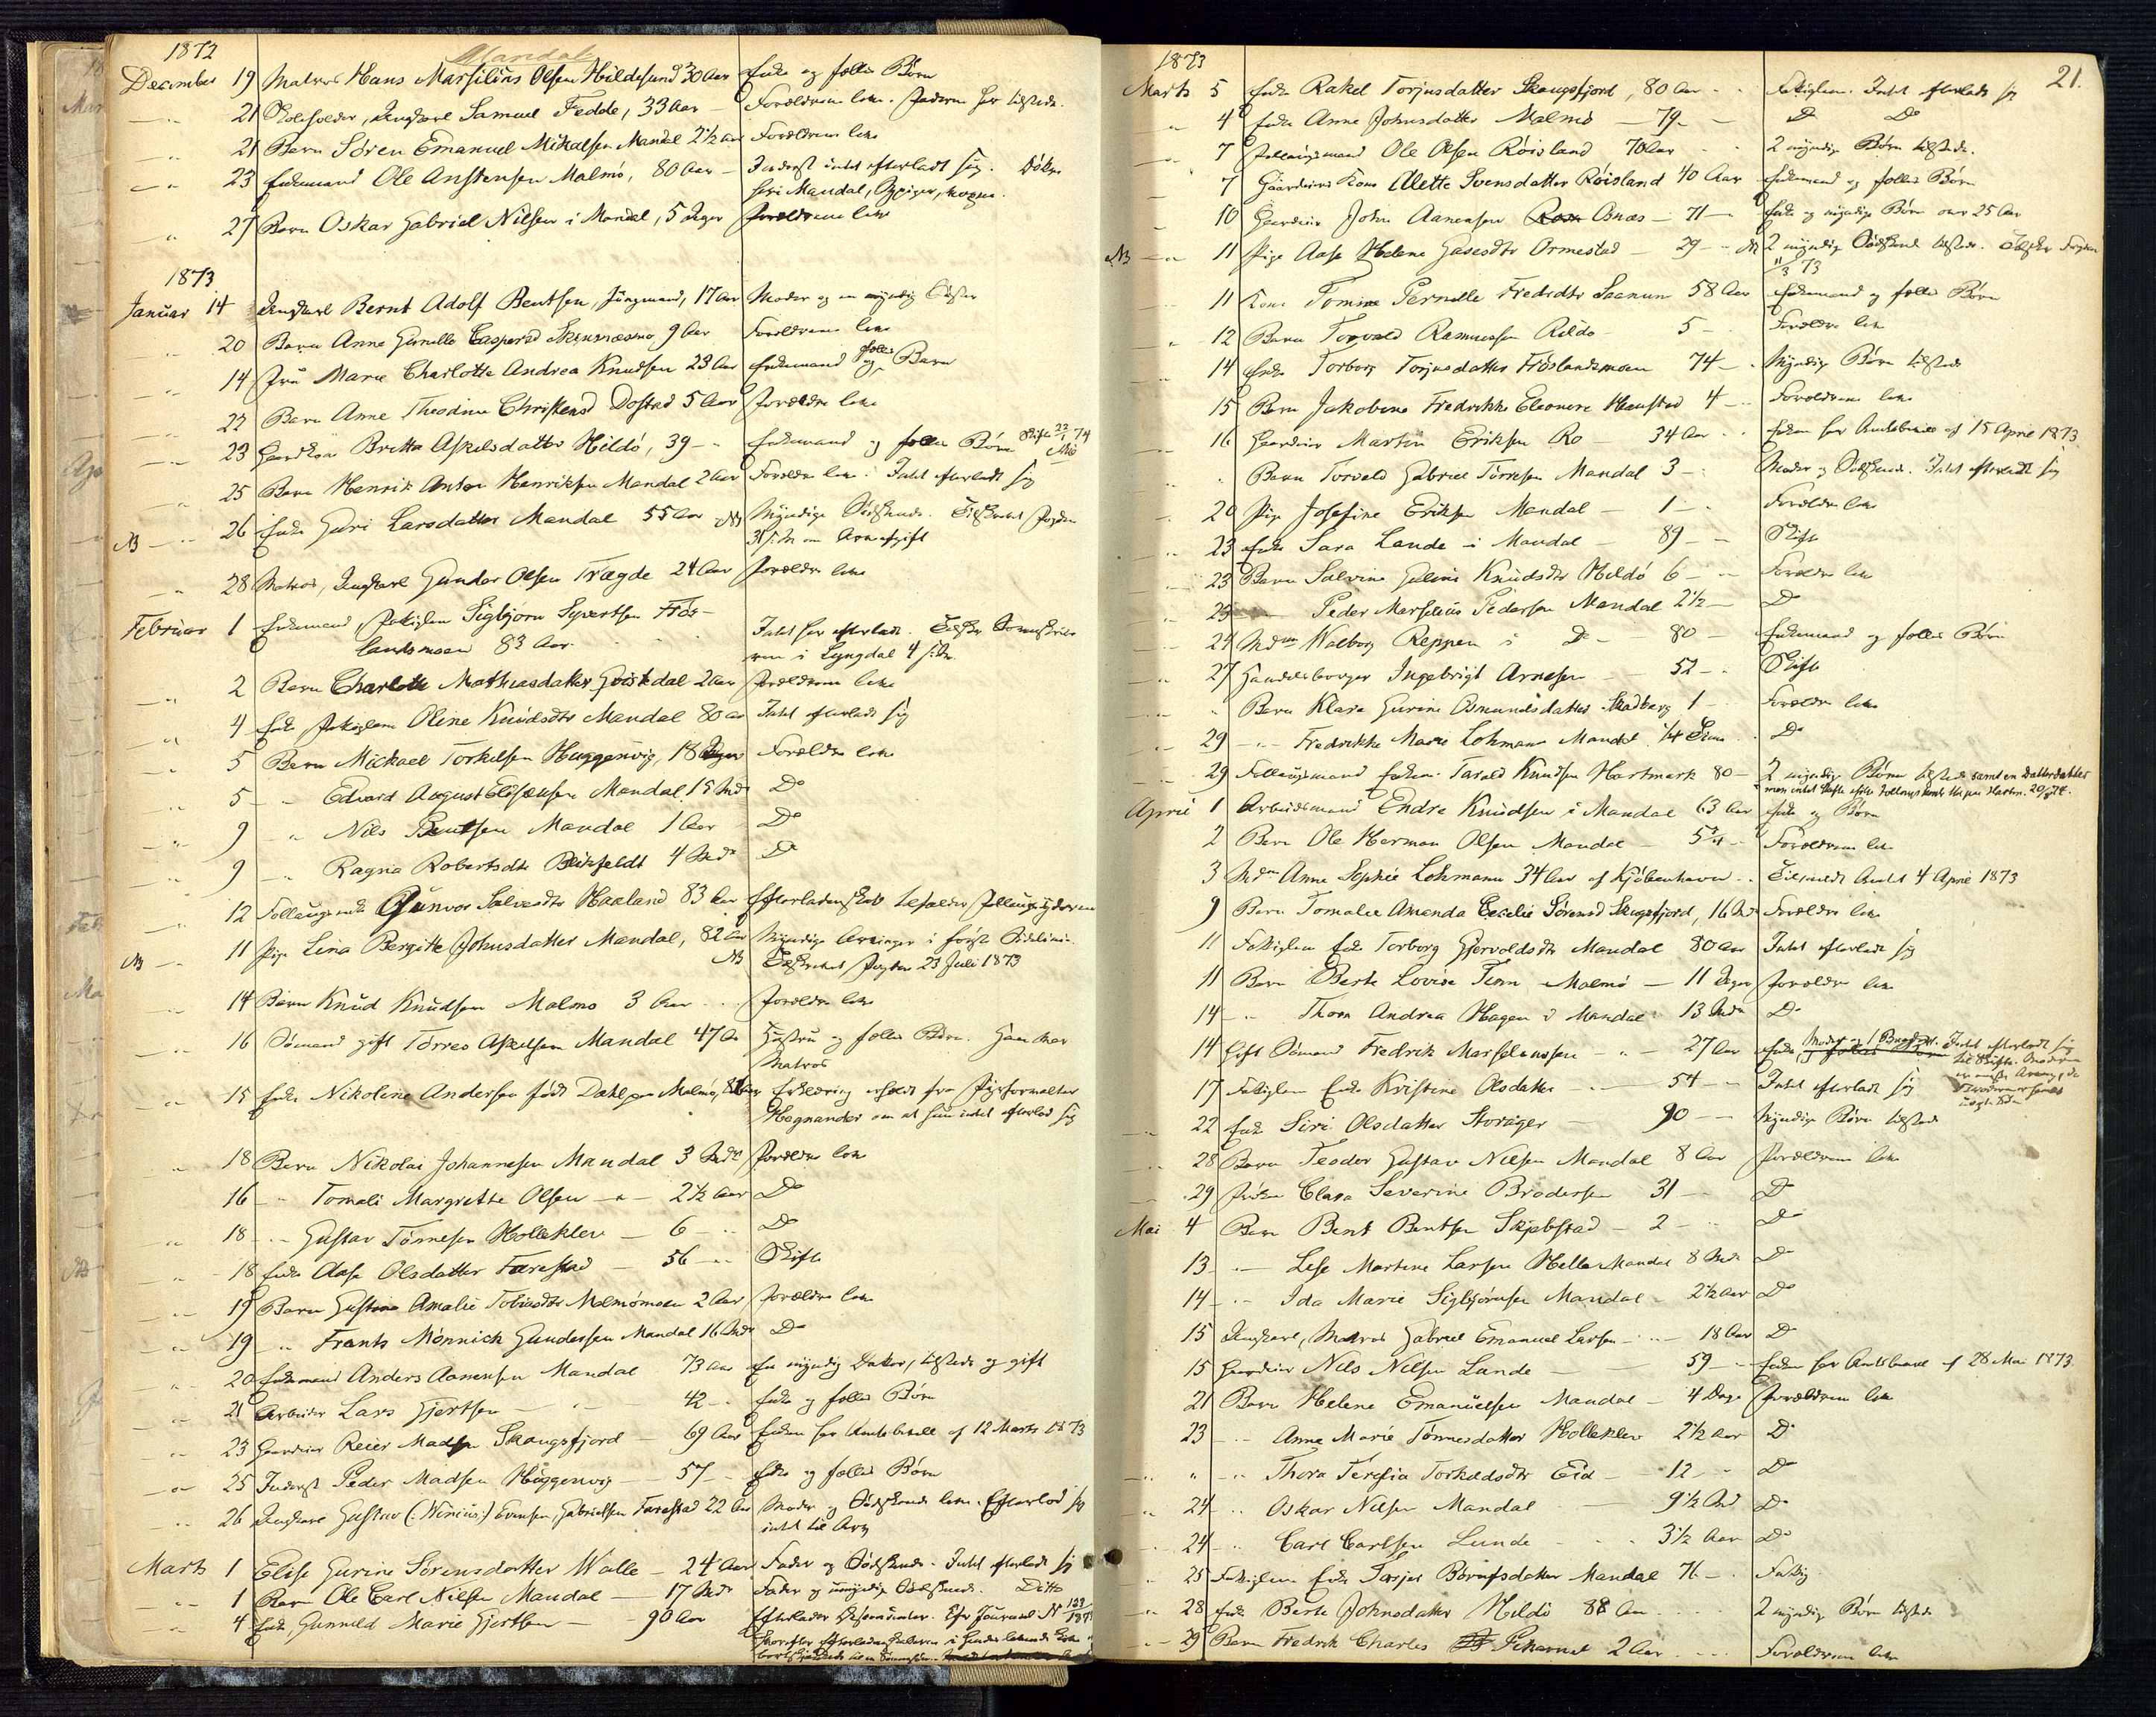 Mandal
1872
December 19 Matros Hans Marsilius Olsen Hildesund 30 Aar Enke og fælles Børn
21 Ungkarl Samuel Fedde, 33 Aar Forældrene leve. Faderen her tilstede.
21 Barn Søren Emanuel Mikalsen Mandal 2½ Aar Forældrene leve
23 Enkemand Ole Anstensen Malmø, 80 Aar Inderst intet efterladt sig.
Mandal
27 Barn Oskar Gabriel Nilsen i Mandal, 5 Dager Forældrene leve
1873
Januar 14 Ungkarl Bernt Adolf Bentsen, Jungmand, 17 Aar Moder og en myndig Søster
20 Barn Anne Gunille Caspersd Skinsnæsmo 9 Aar Forældrene leve
14 Fru Marie Charlotte Andrea Knudsen 23 Aar Enkemand og fælles Barn
22 Barn Anne Theodine Christensd Dostad 5 Aar Forældre leve
23 Britta Askilsdatter Hildø, 39 Enkemand og fælles Børn
25 Barn Henrik Anton Henriksen Mandal 2 Aar Forældre leve. Intet efterladt sig
NB 26 Enke Guri Larsdatter Mandal 55 Aar NB Myndige Sødskende. Tilskrevet Fogden
om Arveafgift
28 Matros, Ungkarl Gunder Olsen Trægde 24 Aar Forældre leve
Februar 1 Enkemand, Fattiglem Sigbjørn Syvertsen Frøs-
landsmoen 83 Aar Intet har efterladt. Tilskr. Sorenskrive-
ren i Lyngdal
2 Barn Charlotte Mathiasdatter 2 Aar Forældrene leve
4 Enke Fattiglem Oline Knudsdtr Mandal 80 Aar Intet efterladt sig
5 Barn Mickael Torkelsen Huggenvig, 18 Dager Forældre leve
5 Edvard August Mandal 15 Mdr Do
9 Nils Bentsen Mandal 1 Aar Do
9 Ragna Robertsdtr Blikfeldt 4 Mdr Do
12 Follaugsenke Gunvor Salvesdtr Haaland 83 Aar
NB 11 Pige Lina Bergitte Johnsdatter Mandal, 82 Aar Myndige Arvinger i første Sidelinie.
NB Tilskrevet Fogden 23 Juli 1873
14 Barn Knud Knudsen Malmø 3 Aar Forældre leve
16 Sømand gift Tørres Askelsen Mandal 47 Aar Hustru og fælles Børn. Han var
Matros
15 Enke Nikoline Andersen født Dahl paa Malmø, Erklæring
Hegnander om at hun intet efterlod sig
18 Barn Nikolai Johannesen Mandal 3 Mdr Forældre leve
16 Tomali Margrethe Olsen 2½ Aar Do
18 Gustav Tønnesen Holleklev 6 Do
18 Enke Aase Olsdatter Farestad 56 Skifte
19 Barn Gustine Amalie Tobiasdtr Malmømoen 2 Aar Forældre leve
19 Frants Mønnich Gundersen Mandal 16 Mdr Do
20 Enkemand Anders Aanensen Mandal 73 Aar En myndig Datter, tilstede og gift
21 Arbeider Lars Gjertsen 42 Enke og fælles Børn
23 Gaardeier Reier Madsen Skaugsfjord 69 Aar Enken har Amtsbevill. af 12 Marts 1873
25 Inderst Peder Madsen Huggenvig 57 Enke og fælles Børn
26 Ungkarl Gustav (: Ninius:) Evensen, Gabrielsen Farestad 22 Aar Moder og Sødskende leve. Efterlod sig
intet til Arv
Marts 1 Elise Gurine Sørensdatter Walle 24 Aar Fader og Sødskende. Intet efterladt sig
1 Barn Ole Carl Nilsen Mandal 17 Mdr Fader og umyndige Sødskende. Ditto
4 Enke, Gunnild Marie Gjertsen 90 Aar Efterlader Testamente.
21.
1873
Marts 5 Enke Rakel Torjusdatter Skaugsfjord, 80 Aar Fattiglem. Intet efterladt sig
4 Enke Anne Johnsdatter Malmø 79 Do Do
7 Follaugsmand Ole Olsen Røisland 78 Aar 2 myndige Børn tilstede.
7 Gaardeiers Kone Alette Svensdatter Røisland 40 Aar Enkemand og fælles Børn
10 Gaardeier John Aanensen Osnæs 71 Enke og myndige Børn over 25 Aar
NB 11 Pige Aase Helene Gasesdtr Ormestad 29 NB 2 myndige Sødskende tilstede. Tilskr. Fogden
11/3 73
11 Kone Tomine Pernille Fredsdtr Saanum 58 Aar Enkemand og fælles Børn
12 Barn Torvald Rasmussen Rildø 5 Forældre leve
14 Enke Torborg Torjusdatter Frøslandsmoen 74 Myndige Børn tilstede
15 Barn Jakobine Fredrikke Eleonore Haustad 4 Forældrene leve
16 Gaardeier Martin Eriksen Ro 34 Aar Enken har Amtsbevill af 15 April 1873
Barn Torvald Gabriel Tørresen Mandal 3 Moder og Sødskende. Intet efterladt sig
20 Pige Josefine Eriksen Mandal 1 Forældre leve
23 Enke Sara Lande i Mandal 89 Skifte
23 Barn Salvine Guline Knudsdtr Hildø 6 Forældre leve
23 Peder Marselius Pedersen Mandal 2½ Do
24 Mdm Walborg Reppen i Do 80 Enkemand og fælles Børn
27 Handelsborger Ingebrigt Arnesen 52 Skifte
Barn Klara Gurine Osmundsdatter Skadberg 1 Forældre leve
29 Fredrikke Marie Lohmann Mandal ¼ Time Do
29 Follaugsmand Enkem. Tarald Knudsen Hartmark 80 2 myndige Børn tilstede samt en Datterdatter
April 1 Arbeidsmand Endre Knudsen i Mandal 63 Aar Enke og Børn
2 Barn Ole Herman Olsen Mandal 5¾ Forældrene leve
3 Mdm Anne Sophie Lohmann 34 Aar af Kjøbenhavn Tilmeldt Amtet 4 April 1873
9 Barn Tomalie Amanda Cecelie Sørensd Skaugsfjord, 16 Mdr Forældre leve
11 Fattiglem Enke Torborg Gjervoldsdtr Mandal 80 Aar Intet efterladt sig
11 Barn Berte Lovise Finn Malmø 11 Dager Forældre leve
14 Thora Andrea Hagen i Mandal 13 Mdr Do
14 Gift Sømand Fredrik Marseliussen 27 Aar Enke, Moder og 1 Broder. Intet efterladt sig
til Skifte. Moderen
17 Fattiglem Enke Kristine Olsdatter 54 Intet efterladt sig
22 Enke Siri Olsdatter Storager 90 Myndige Børn tilstede
28 Barn Teodor Gustav Nilsen Mandal 8 Aar Forældrene leve
29 Frøken Clara Severine Brodersen 31 Do
Mai 4 Barn Bent Bentsen Skjebstad 2 Do
13 Lese Martine Larsen Hella Mandal 8 Mdr Do
14 Ida Marie Sigbjørnsen Mandal 2½ Aar Do
15 Ungkarl, Matros Gabriel Emanuel Larsen 18 Aar Do
15 Gaardeier Nils Nilsen Lande 59 Enken har Amtsbevill af 28 Mai 1873
21 Barn Helene Emanuelsen Mandal 4 Dage Forældrene leve
23 Anne Marie Tønnesdatter Holleklev 2½ Aar Do
Thora Teresia Torkeldsdtr Eid 12 Do
24 Oskar Nilsen Mandal 9½ Md Do
24 Carl Carlsen Lunde 3½ Aar Do
25 Fattiglem Enke Mandal 76 Fattig
28 Enke Berte Johnsdatter Hildø 88 Aar 2 myndige Børn tilstede
29 Barn Fredrik Charles 2 Aar Forældrene leve